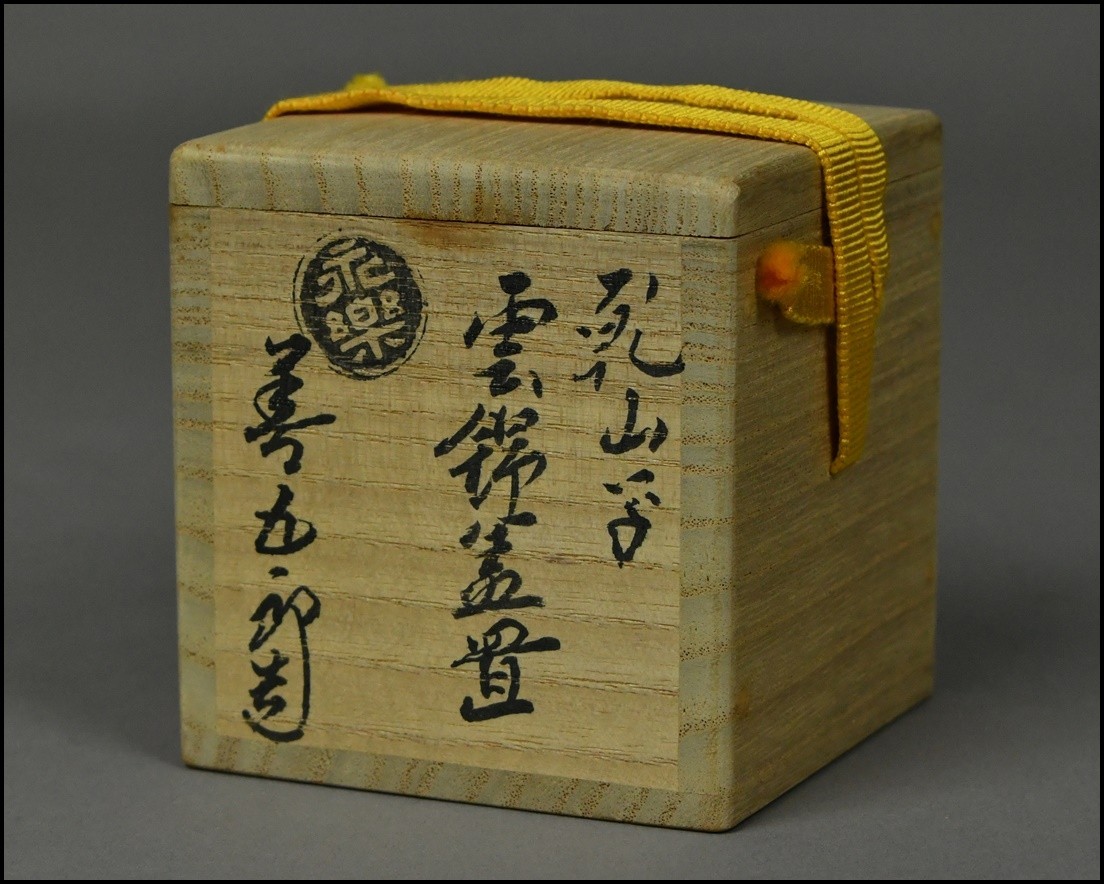 乾山写
雲錦蓋置
善五郎造
永樂